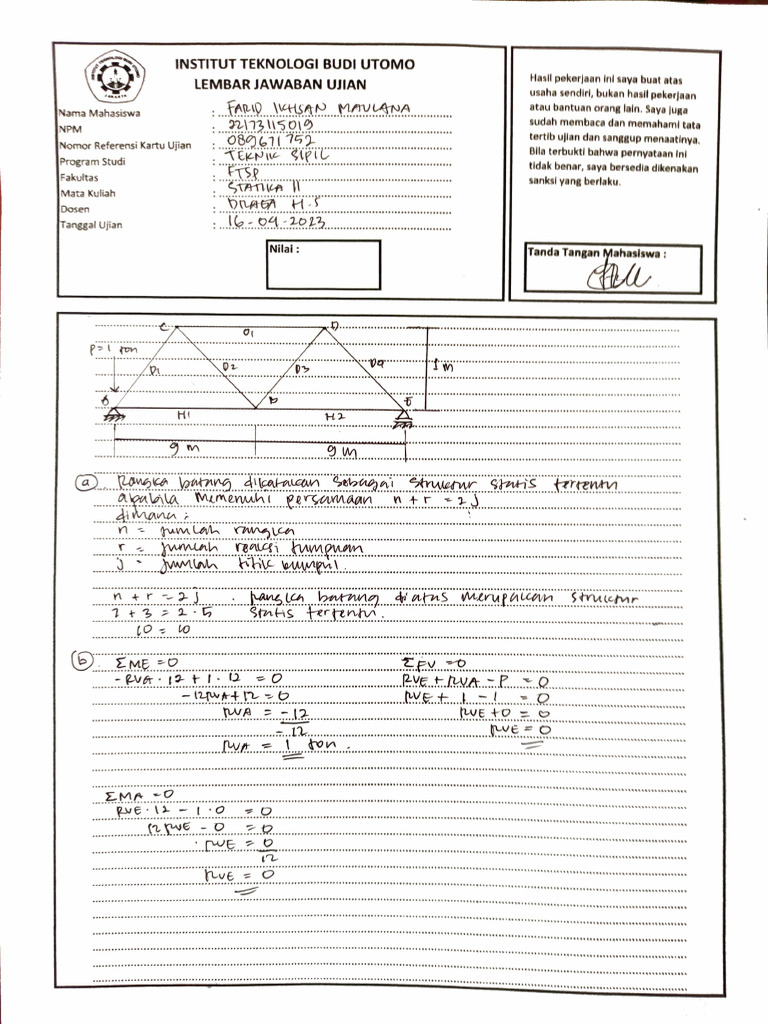 INSTITUT TEKNOLOGI BUDI UTOMO
LEMBAR JAWABAN UJIAN
INSTITUT TEKNOLOGI BUDI UTOMO
JAKARTA
Nama Mahasiswa : FARID IKHSAN MAULANA
NPM : 22173115019
Nomor Referensi Kartu Ujian : 089671752
Program Studi : TEKNIK SIPIL
Fakultas : FTSP
Mata Kuliah : STATIKA II
Dosen : DRAGA H.S
Tanggal Ujian : 16-09-2023
Nilai :
Hasil pekerjaan ini saya buat atas
usaha sendiri, bukan hasil pekerjaan
atau bantuan orang lain. Saya juga
sudah membaca dan memahami tata
tertib ujian dan sanggup menaatinya.
Bila terbukti bahwa pernyataan ini
tidak benar, saya bersedia dikenakan
sanksi yang berlaku.
Tanda Tangan Mahasiswa :
C O1 D
P = 1 ton
D1 D2 D3 D4 1 m
A B E
H1 H2
9 m 9 m
a Rangka batang dikatakan sebagai struktur statis tertentu
apabila memenuhi persamaan n + r = 2 j
dimana :
n = jumlah rangka
r = jumlah reaksi tumpuan
j = jumlah titik kumpul
n + r = 2 j . Rangka batang diatas merupakan struktur
7 + 3 = 2 . 5 statis tertentu.
10 = 10
b ΣME = 0
- RVA . 12 + 1 . 12 = 0
- 12RVA + 12 = 0
RVA = -12
-12
RVA = 1 ton .
ΣFV = 0
RVE + RVA - P = 0
RVE + 1 - 1 = 0
RVE + 0 = 0
RVE = 0
ΣMA = 0
RVE . 12 - 1 . 0 = 0
12 RVE - 0 = 0
. RVE = 0
12
RVE = 0